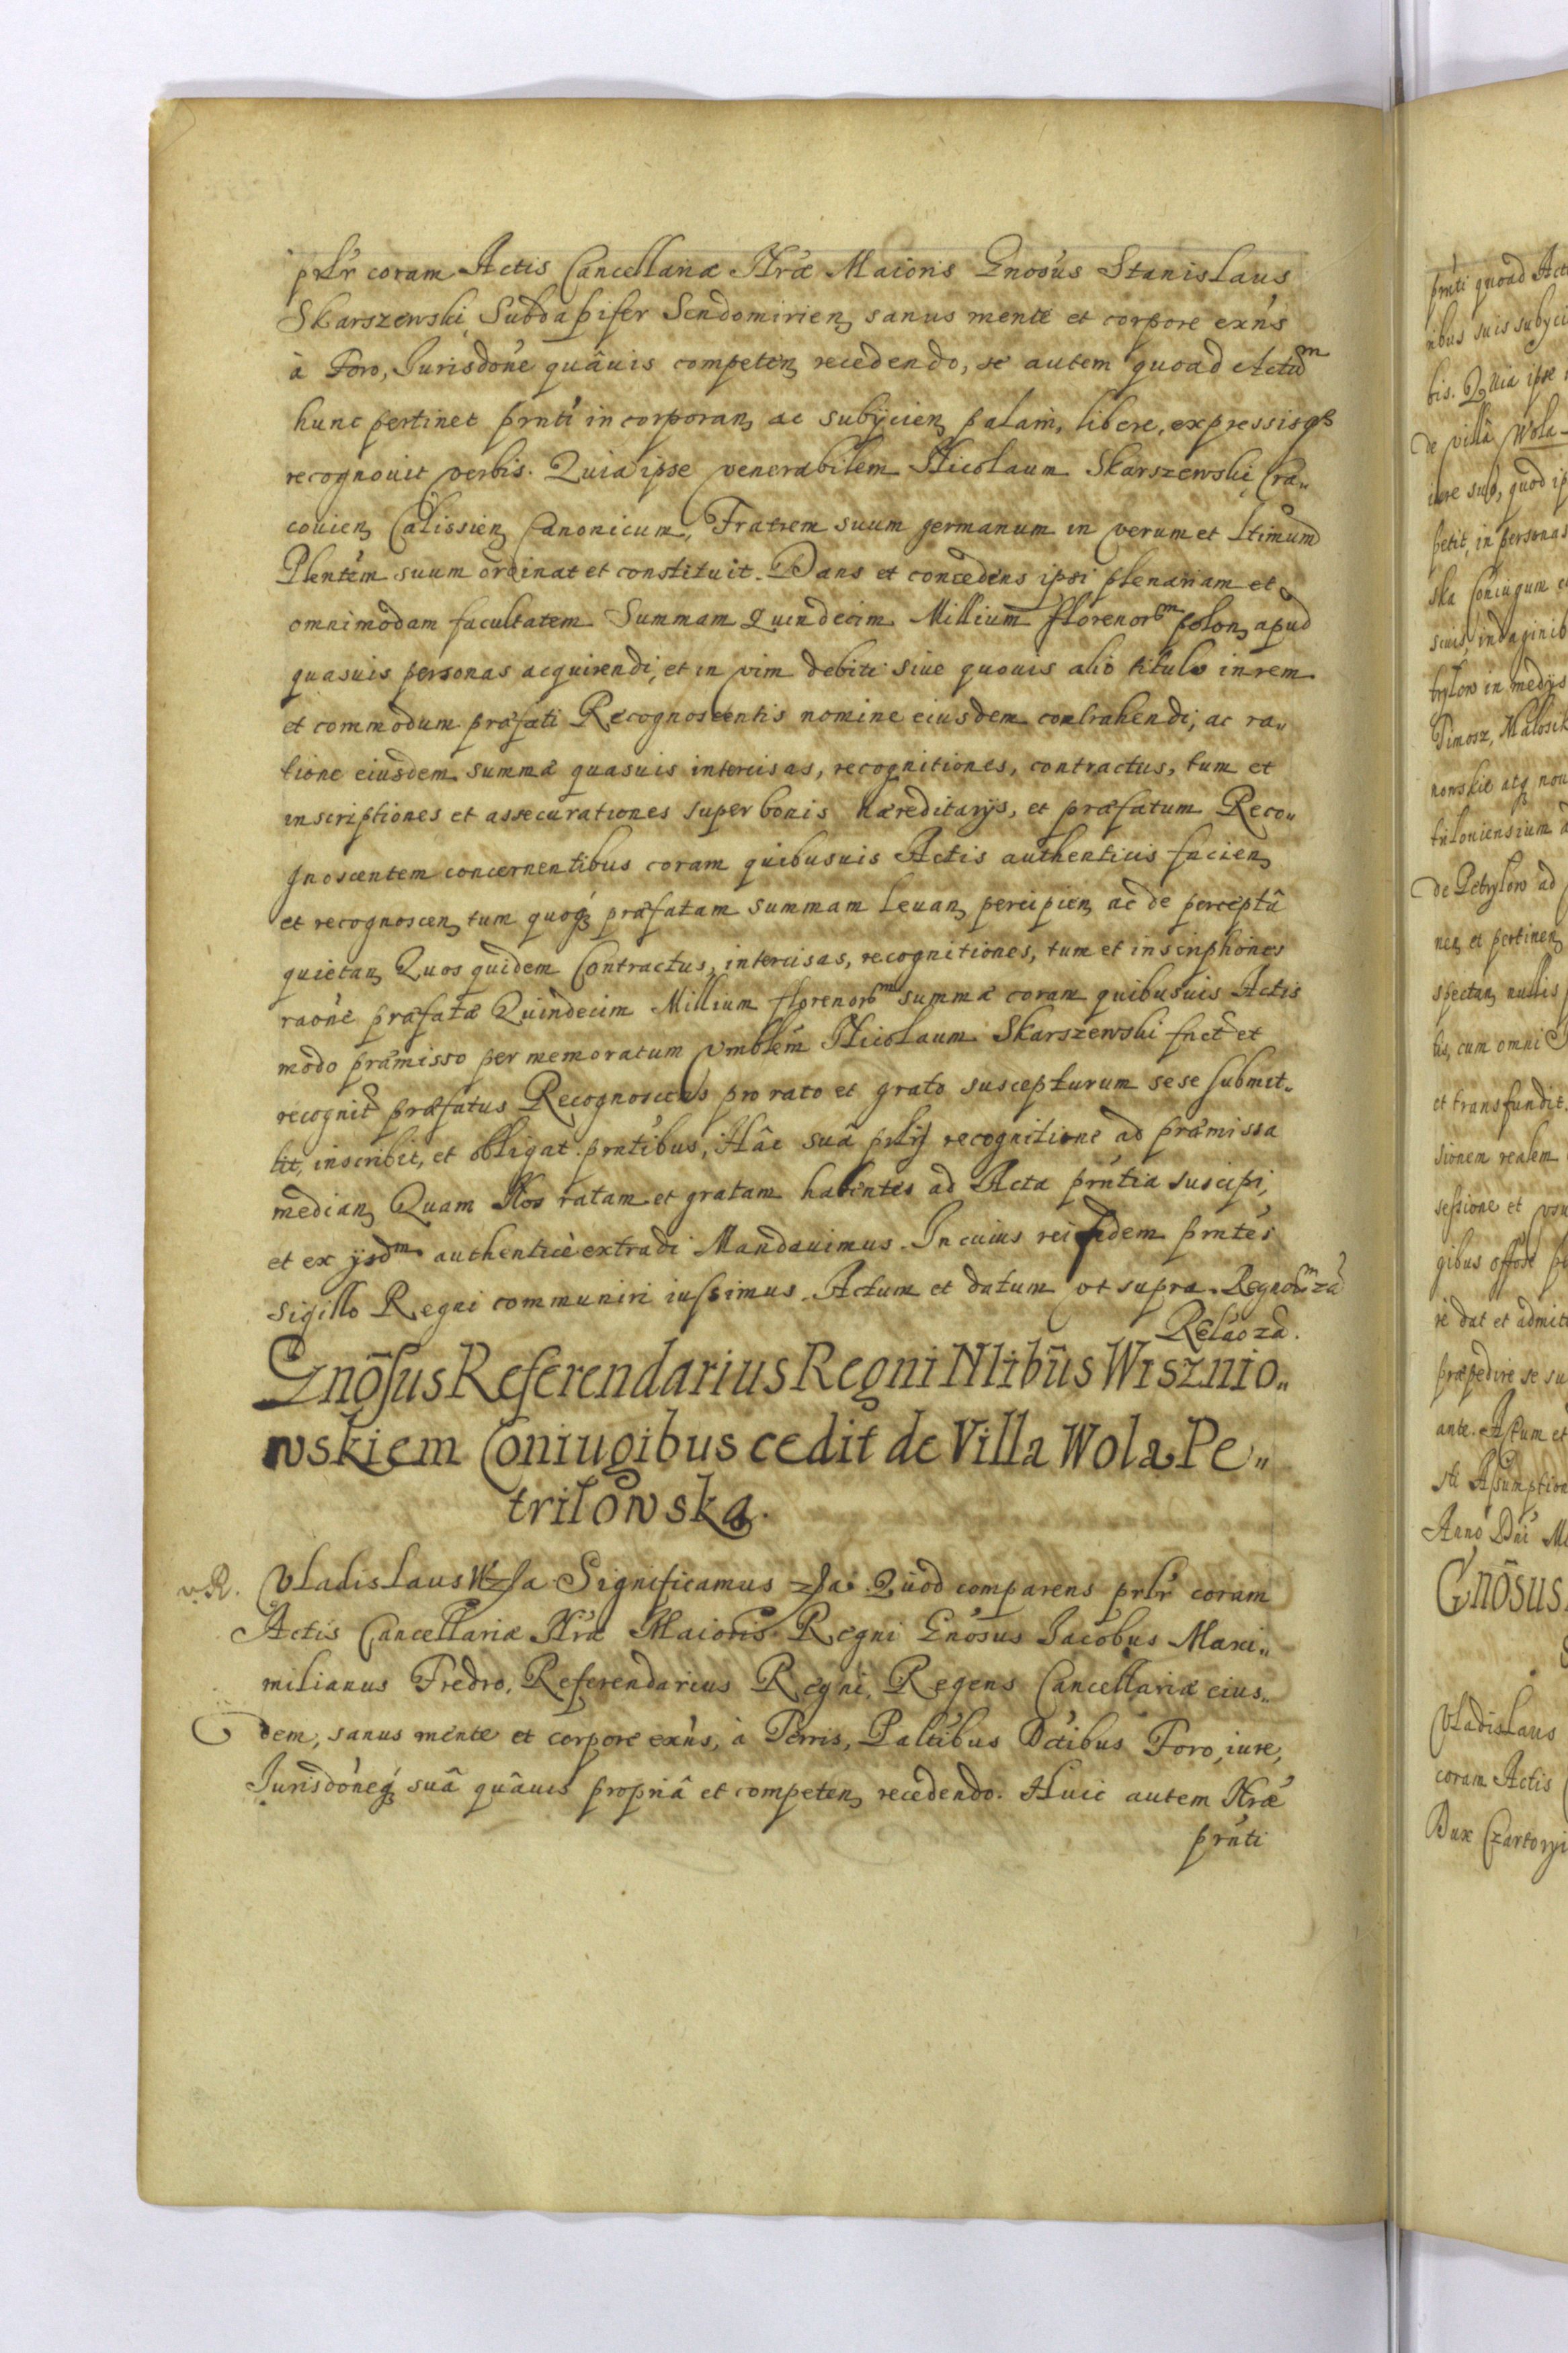 prlr coram Actis Cancellariæ Nræ Maioris Gnosus Stanislaus
Skarszewski Subdapifer Sendomirien, sanus mente et corpore exns
à Foro, Jurisdone quâuis competen, recedendo, se autem quoad Actum
hunc pertinet prnti incorporan, ac subijcien, palam, libere, expressisqe
recognouit verbis. Quia ipse venerabilem Nicolaum Skarszewski Cra„
couien, Calissien, Canonicum, Fratrem suum germanum in verum et Ltimum
Plentem suum ordinat et constituit. Dans et concedens ipsi plenariam et
omnimodam facultatem Summam Quindecim Millium florenorm polon, apud
quasuis personas acquirendi, et in vim debiti siue quouis alio titulo in rem
et commodum præfati Recognoscentis nomine eiusdem contrahendi, ac ra„
tione eiusdem summæ quasuis intercisas, recognitiones, contractus, tum et
inscriptiones et assecurationes super bonis hæreditarijs, et præfatum Reco„
gnoscentem concernentibus coram quibusuis Actis authenticis facien,
et recognoscen, tum quoq præfatam summam leuan, percipien, ac de perceptâ
quietan, Quos quidem Contractus, intercisas, recognitiones, tum et inscriptiones
raone præfatæ Quindecim Millium florenorm summæ coram quibusuis Actis
modo præmisso per memoratum Vnblem Nicolaum Skarszewski fact et
recognit præfatus Recognoscens pro rato et grato suscepturum sese submit„
tit, inscribit, et obligat prntibus, Hâc suâ prlij recognitione ad præmissa
median, Quam Nos ratam et gratam habentes ad Acta prntia suscipi,
et ex ijsdm authenticè extradi Mandauimus. In cuius rei fidem prntes
sigillo Regni communiri iussimus. Actum et datum vt supra. Regnorm za
Relao za.
Gnosus Referendarius Regni Nlibus Wisznio„
wskiem Coniugibus cedit de Villa Wola Pe„
trilowska.
v. R. Vladislaus IV zJa Significamus zJa. Quod comparens prlr coram
Actis Cancellariæ Nræ Maioris Regni Gnosus Jacobus Maxi„
milianus Fredro, Referendarius Regni, Regens Cancellariæ eius„
dem, sanus mente et corpore exns, à Terris, Paltibus Dctibus Foro, iure,
Jurisdoneq suâ quâuis propriâ et competen, recedendo. Huic autem Nræ
prnti
prnti quoad Act
nibus suis subijci
bis. Quia ipse
de villâ Wola
iure suo, quod ip
petit, in personas
ska Coniugum e
suis, indaginib
trylow in medijs
Timosz,
nowskie atq non
triloniensium
de Petrylow ad
nen, et pertinen,
spectan, nullis
lis, cum omni
et transfundit.
sionem realem
sessione et vsu
gibus
re dat et admit
præpedire se su
ante. Actum et
sti Assumption
Anno Dni M
Gnosus
Vladislaus
coram Actis
Dux Czartoryi